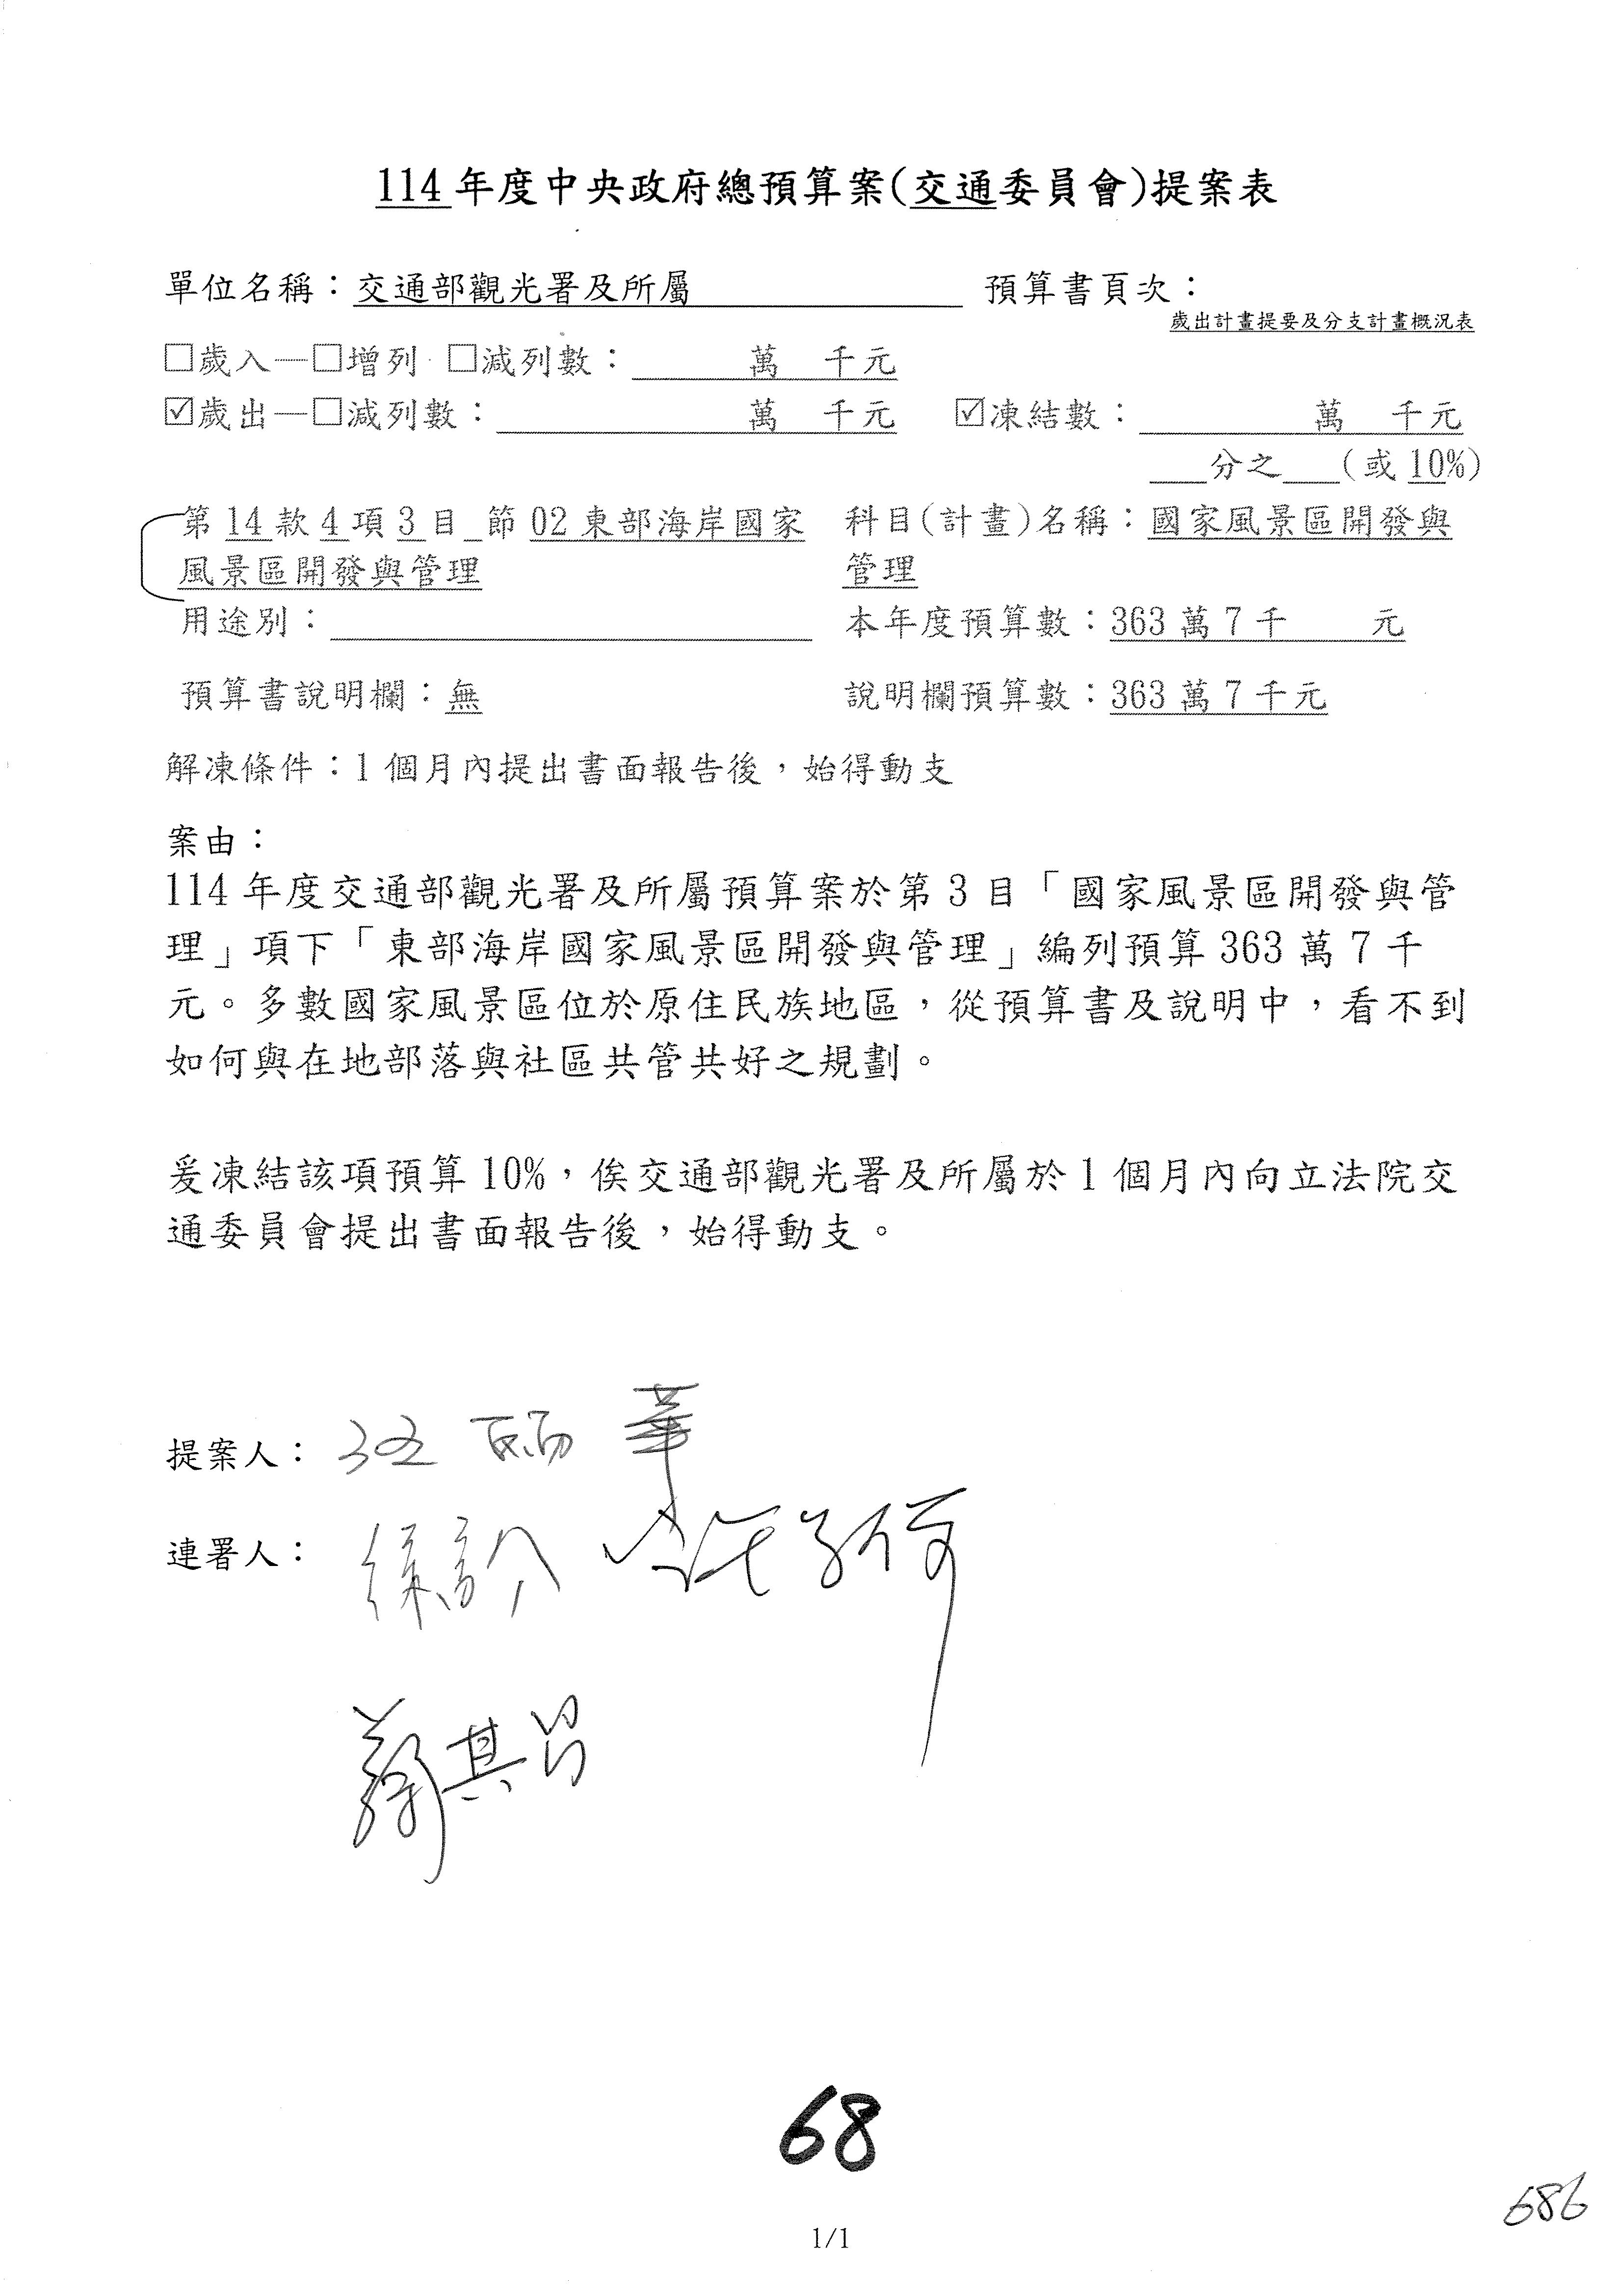 114年度中央政府總預算案(交通委員會)提案表
單位名稱：交通部觀光署及所屬 預算書頁次：
歲出計畫提要及分支計畫概況表
□歲入—□增列 □減列數： 萬 千元
☑歲出—□減列數： 萬 千元 ☑凍結數： 萬 千元
分之 (或10%)
第14款4項3目_節02東部海岸國家 科目(計畫)名稱：國家風景區開發與
風景區開發與管理 管理
用途別： 本年度預算數：363萬7千 元
預算書說明欄：無 說明欄預算數：363萬7千元
解凍條件：1個月內提出書面報告後，始得動支
案由：
114年度交通部觀光署及所屬預算案於第3目「國家風景區開發與管
理」項下「東部海岸國家風景區開發與管理」編列預算363萬7千
元。多數國家風景區位於原住民族地區，從預算書及說明中，看不到
如何與在地部落與社區共管共好之規劃。
爰凍結該項預算10%，俟交通部觀光署及所屬於1個月內向立法院交
通委員會提出書面報告後，始得動支。
提案人：
連署人：
蔡其昌
68
686
1/1